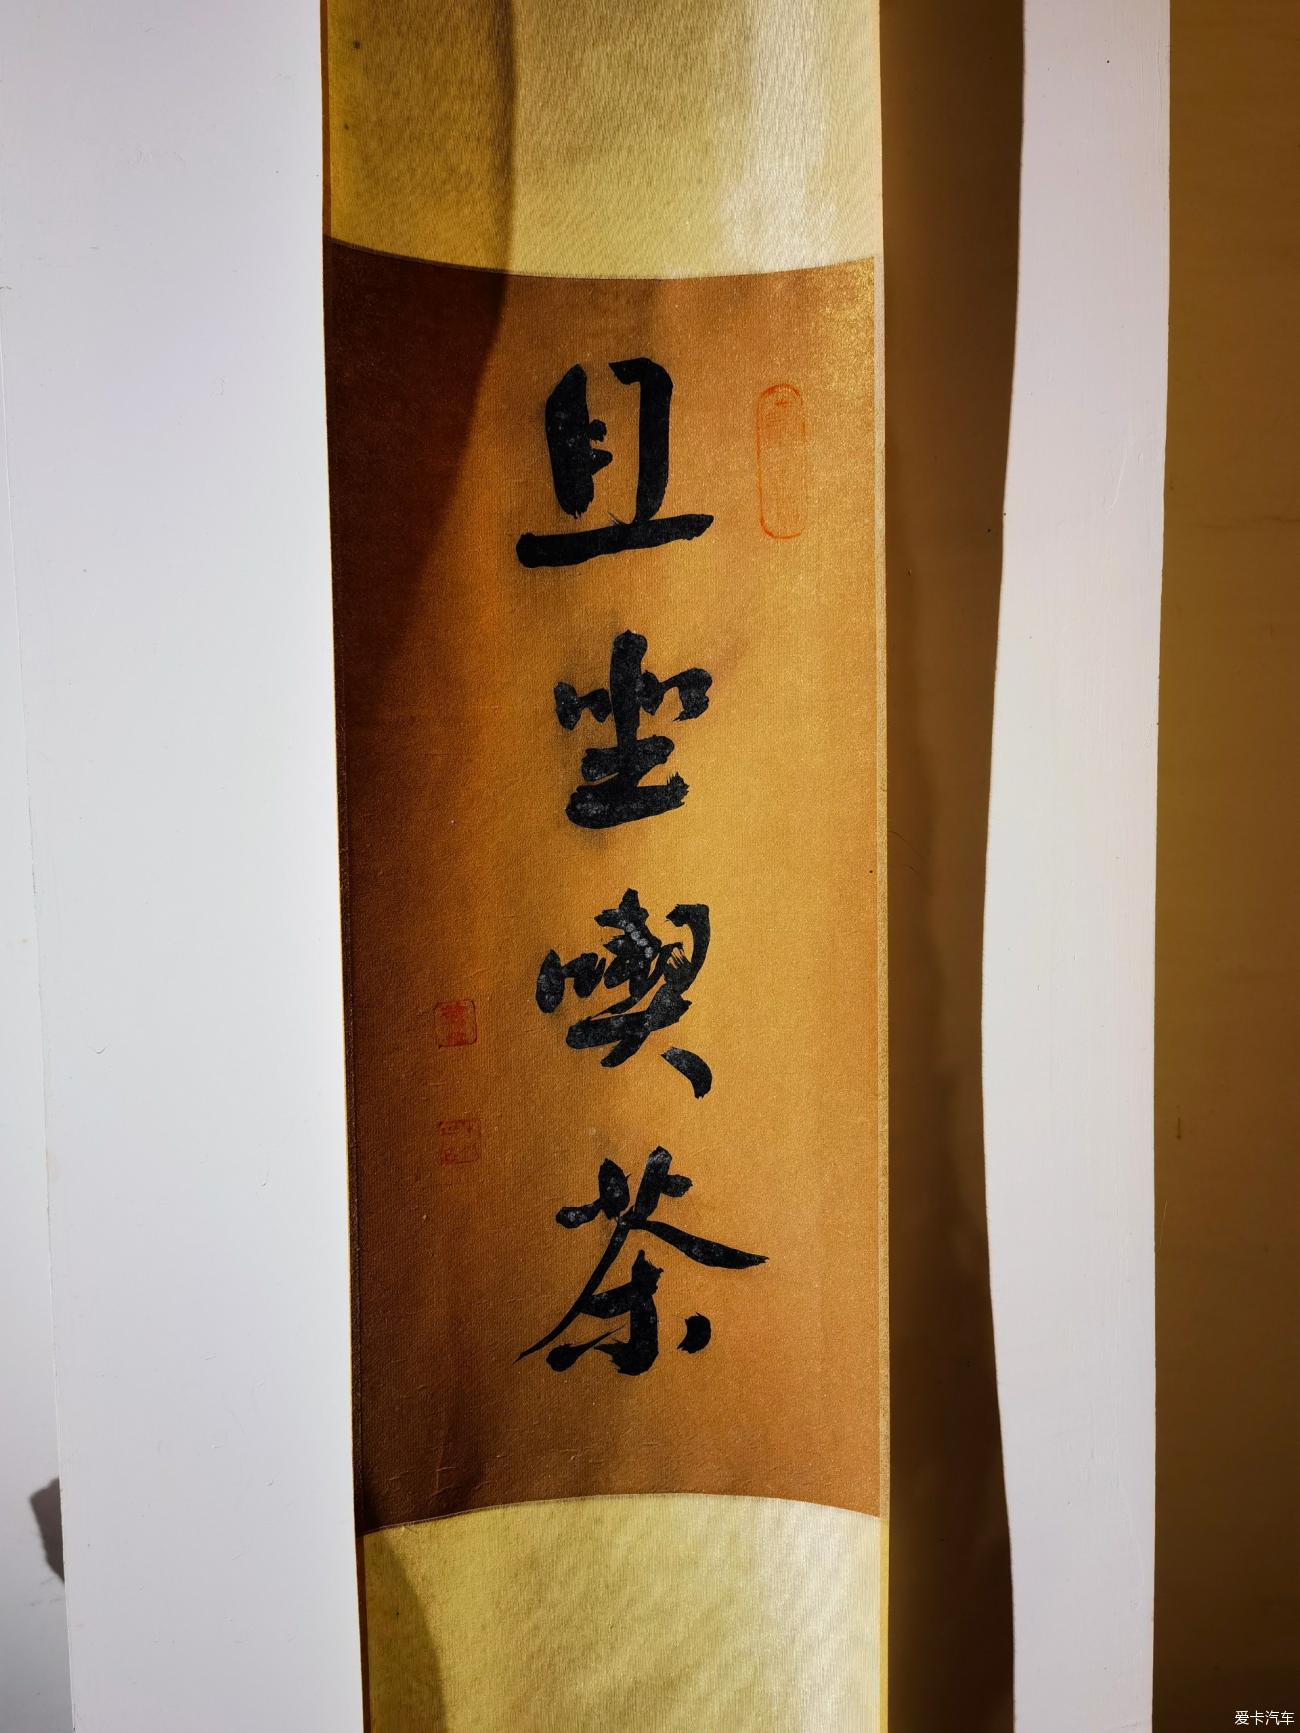 且坐喫茶
爱卡汽车